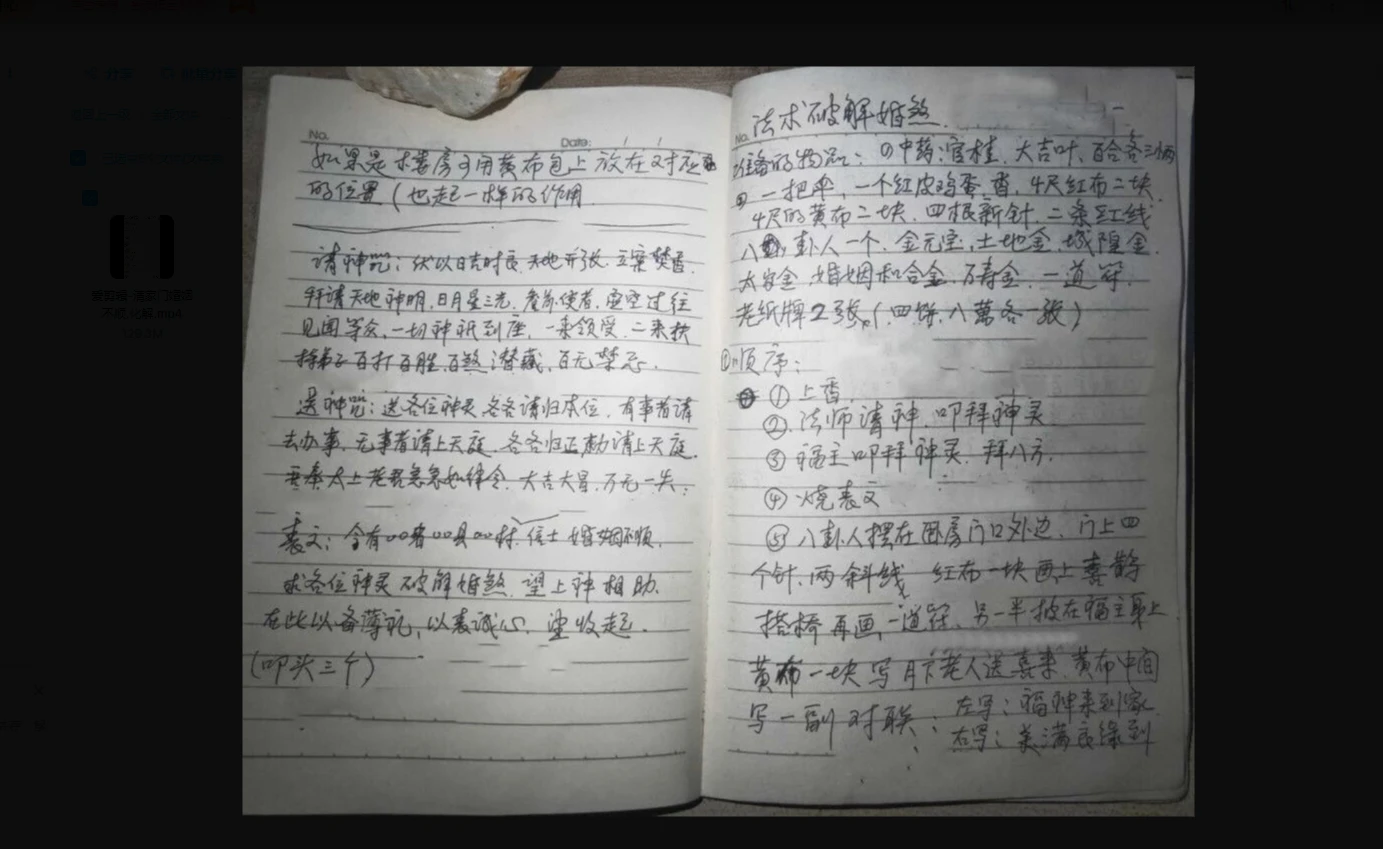 No.
Date:
如果是楼房可用黄布包上放在对应
的位置（也起一样的作用
请神咒：伏以日吉时良天地开张.立案焚香.
拜请天地神明,日月星三光,虚空过往
见闻等众,一切神祇到座,一来领受.二来扶
持弟子百打百胜.百煞潜藏,百无禁忌.
送神咒：送各位神灵各各请归本位,有事者请
去办事,无事者请上天庭.各各归正 请上天庭.
吾奉太上老君急急如律令.大吉大昌.万无一失;
表文：今有○○省○○县○○村.信士婚姻不顺.
求各位神灵破解婚煞.望上神相助.
在此以备薄礼,以表诚心.望收起.
(叩头三个)
法术破解婚煞.
No.
准备的物品： 中药:官桂.大吉叶.百合各三两
一把伞,一个红皮鸡蛋,香,4尺红布二块
4尺的黄布二块.四根新针.二条红线
八卦人一个.金元宝,土地金.城隍金
太岁金,婚姻和合金,万寿金,一道符.
老纸牌2张,(四饼,八萬各一张)
顺序：
①上香
②.法师请神.叩拜神灵
③福主叩拜神灵.拜八方.
④烧表文
⑤八卦人摆在卧房门口外边,门上四
个针.两斜线 红布一块画上喜鹊
搭桥再画,一道符.另一半披在福主身上
黄布一块写月下老人送喜来.黄布中间
写一副对联：左写：福神来到家
右写：美满良缘到